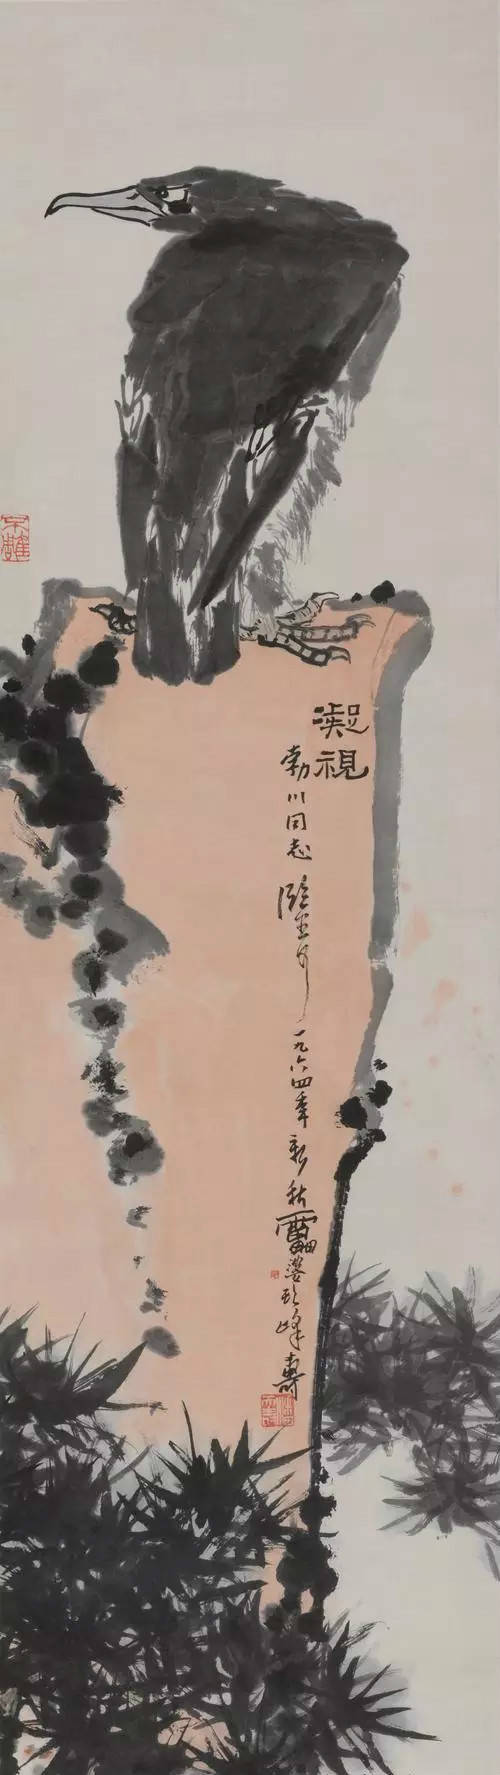 凝視
勃川同志 正 一九六四年新秋雷婆頭峰壽
不雕